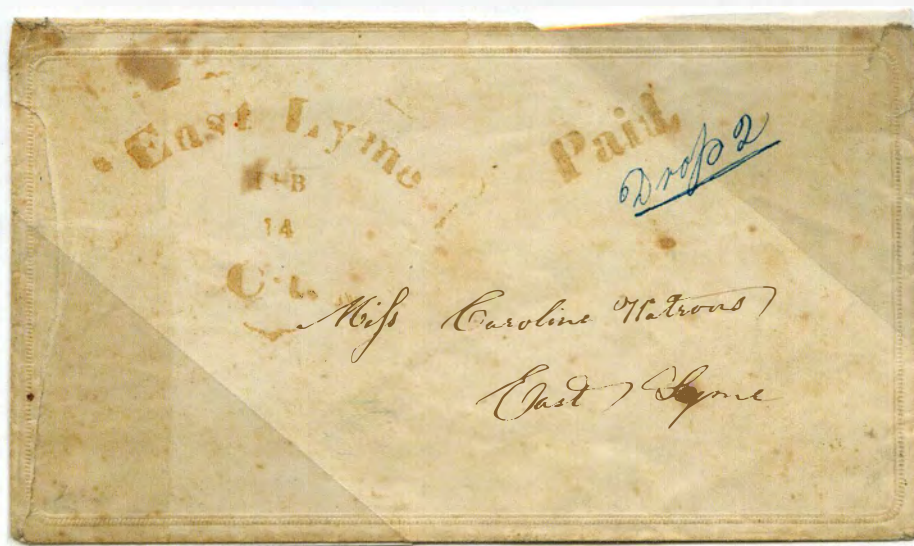 East Lyme
FEB
14
Ct.
Paid
Drop 2
Miss Caroline Watrous
East Lyme